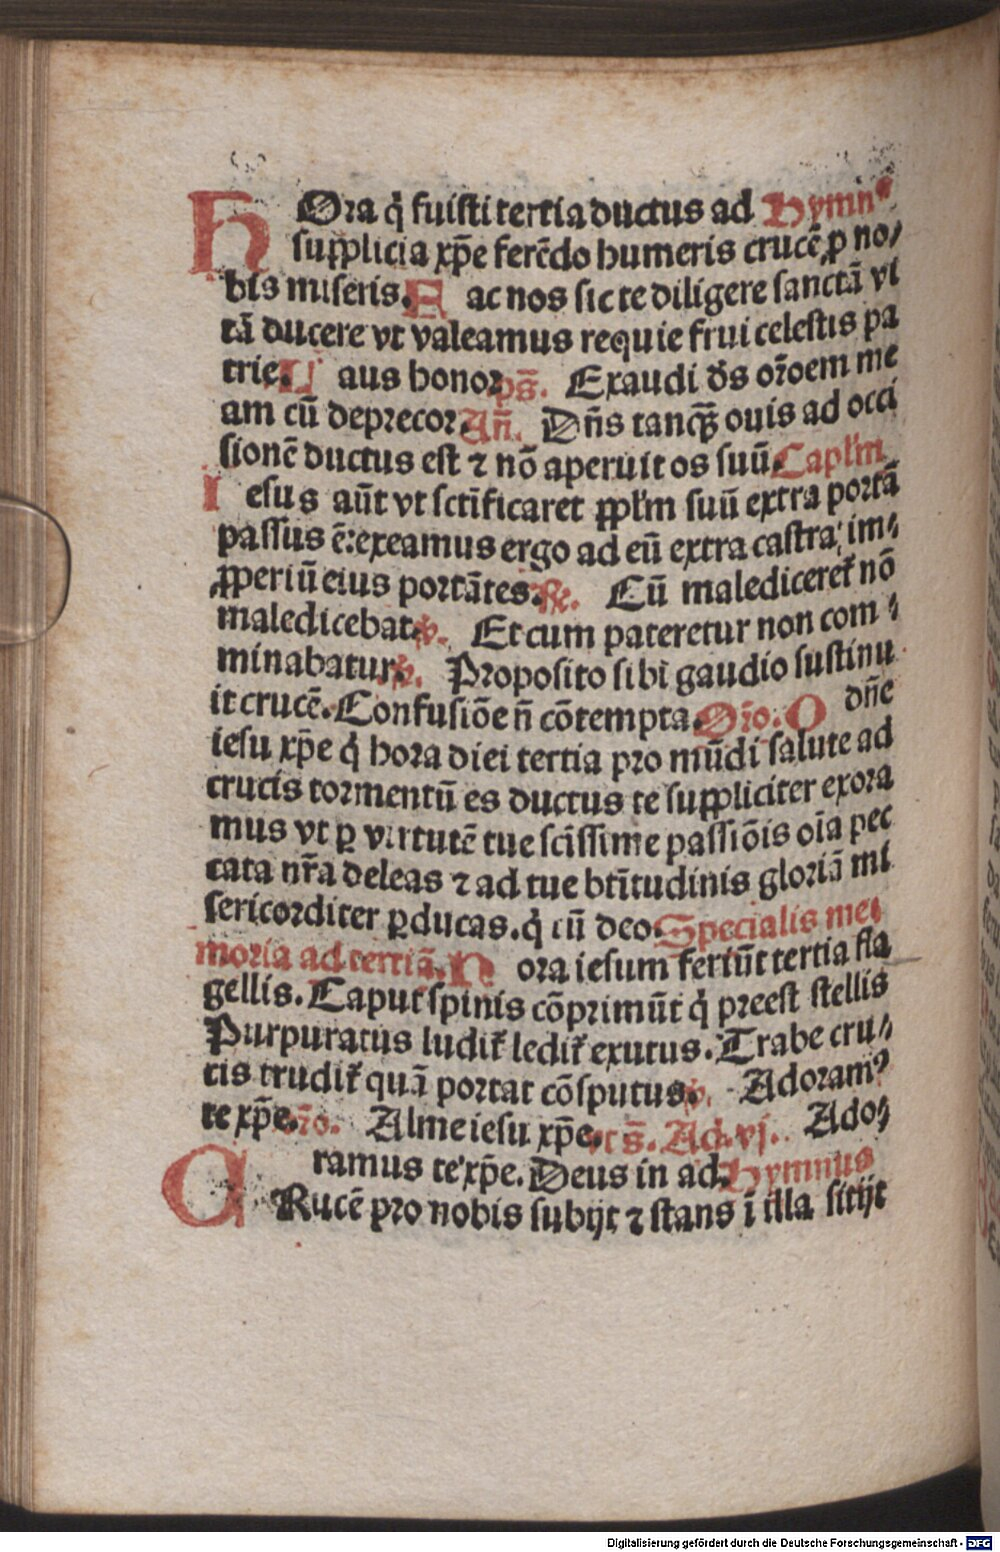 HOra q̇ fuisti tertia ductus ad Hymnꝰ
supplicia xp̄e ferēdo humeris crucē ꝓ no/
bis miseris. Fac nos sic te diligere sanctā vi
tā ducere vt valeamus requie frui celestis pa
trie. Laus honor ps̄. Exaudi ds̄ or̄oem me
am cū deprecor. Añ. Dn̄s tanqᷓ ouis ad occi
sionē ductus est ⁊ nō aperuit os suū. Capl̄m
Iesus aūt vt sct̄ificaret ppl̄m suū extra portā
passus ē: exeamus ergo ad eū extra castra: im⸗
ꝓperiū eius portātes. ℟. Cū malediceret᷑ nō
maledicebat. ℣. Et cum pateretur non com⸗
minabatur. ℣. Proposito sibi gaudio sustinu
it crucē. Confusiōe n̄ cōtempta. Or̄o. O dn̄e
iesu xp̄e q̇ hora diei tertia pro mūdi salute ad
crucis tormentū es ductus te suppliciter exora
mus vt ꝑ virtutē tue scīssime passiōis oīa pec
cata nr̄a deleas ⁊ ad tue btītudinis gloriā mi
sericorditer ꝑducas. q̇ cū deo. Specialis me⸗
moria ad tertiā. Hora iesum feriūt tertia fla
gellis. Caput spinis cōprimūt q̇ preest stellis
Purpuratus ludit᷑ ledit᷑ exutus. Trabe cru⸗
cis trudit᷑ quā portat cōsputus. ℣. Adoramꝰ
te xp̄e. or̄o. Alme iesu xp̄e. vt s̄. Ad. vj. Ado⸗
ramus te xp̄e. Deus in ad. Hymnus
CRucē pro nobis subijt ⁊ stans ī illa sitijt
Digitalisierung gefördert durch die Deutsche Forschungsgemeinschaft - DFG